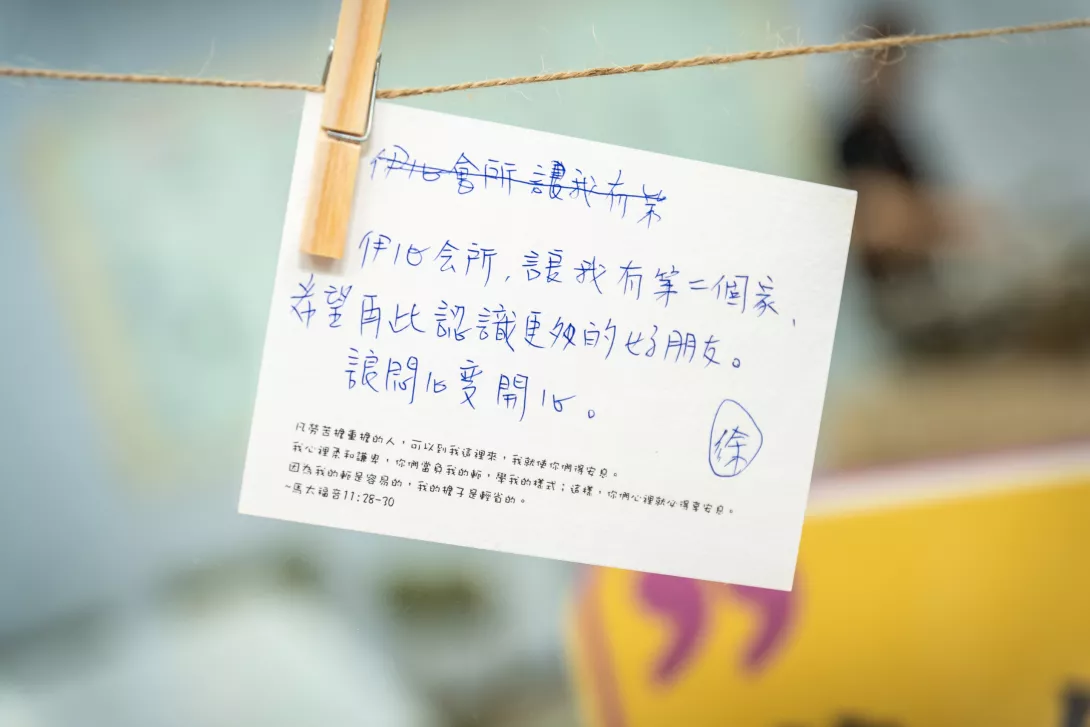 伊心會所讓我有第
伊心会所,讓我有第二個家、
希望再此認識更多的好朋友。
讓悶心變開心。
徐
凡勞苦擔重擔的人,可以到我這裡來,我就使你們得安息。
我心裡柔和謙卑,你們當負我的軛,學我的樣式;這樣,你們心裡就必得享安息。
因為我的軛是容易的,我的擔子是輕省的。
~馬太福音11:28-30